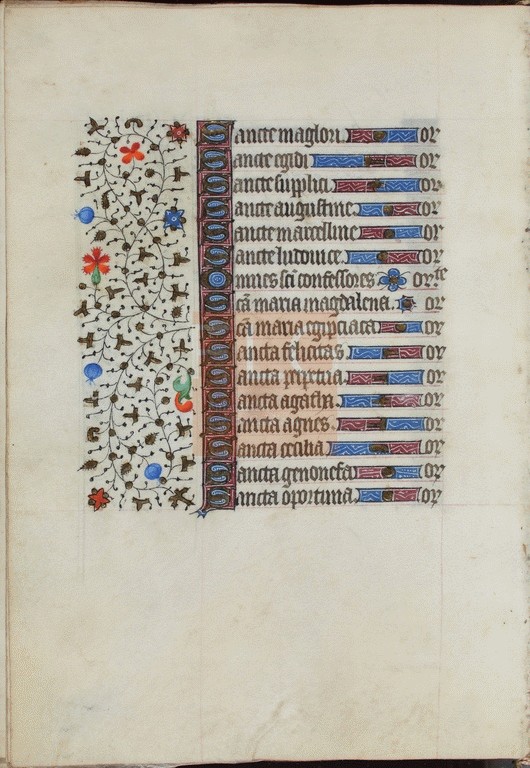 Sancte maglori. or
Sancte egidi or
Sancte supplici or
Sancte augustine or
Sancte marcelline or
Sancte ludovice. or
Omnes sci confessores orte
Sca maria magdalena. or
Sca maria egipciaca or
Sancta felicitas or
Sancta perpetua or
Sancta agatha. or
Sancta agnes. or
Sancta cecilia or
Sancta genovefa or
Sancta oportuna or